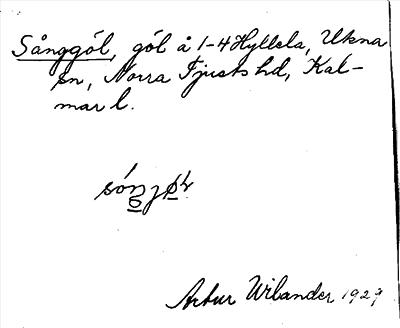 Sånggól, gól å 1-4 Hyllela, Ukna
sn, Norra Tjusts hd, Kal-
mar l.
Artur Wilander 1929